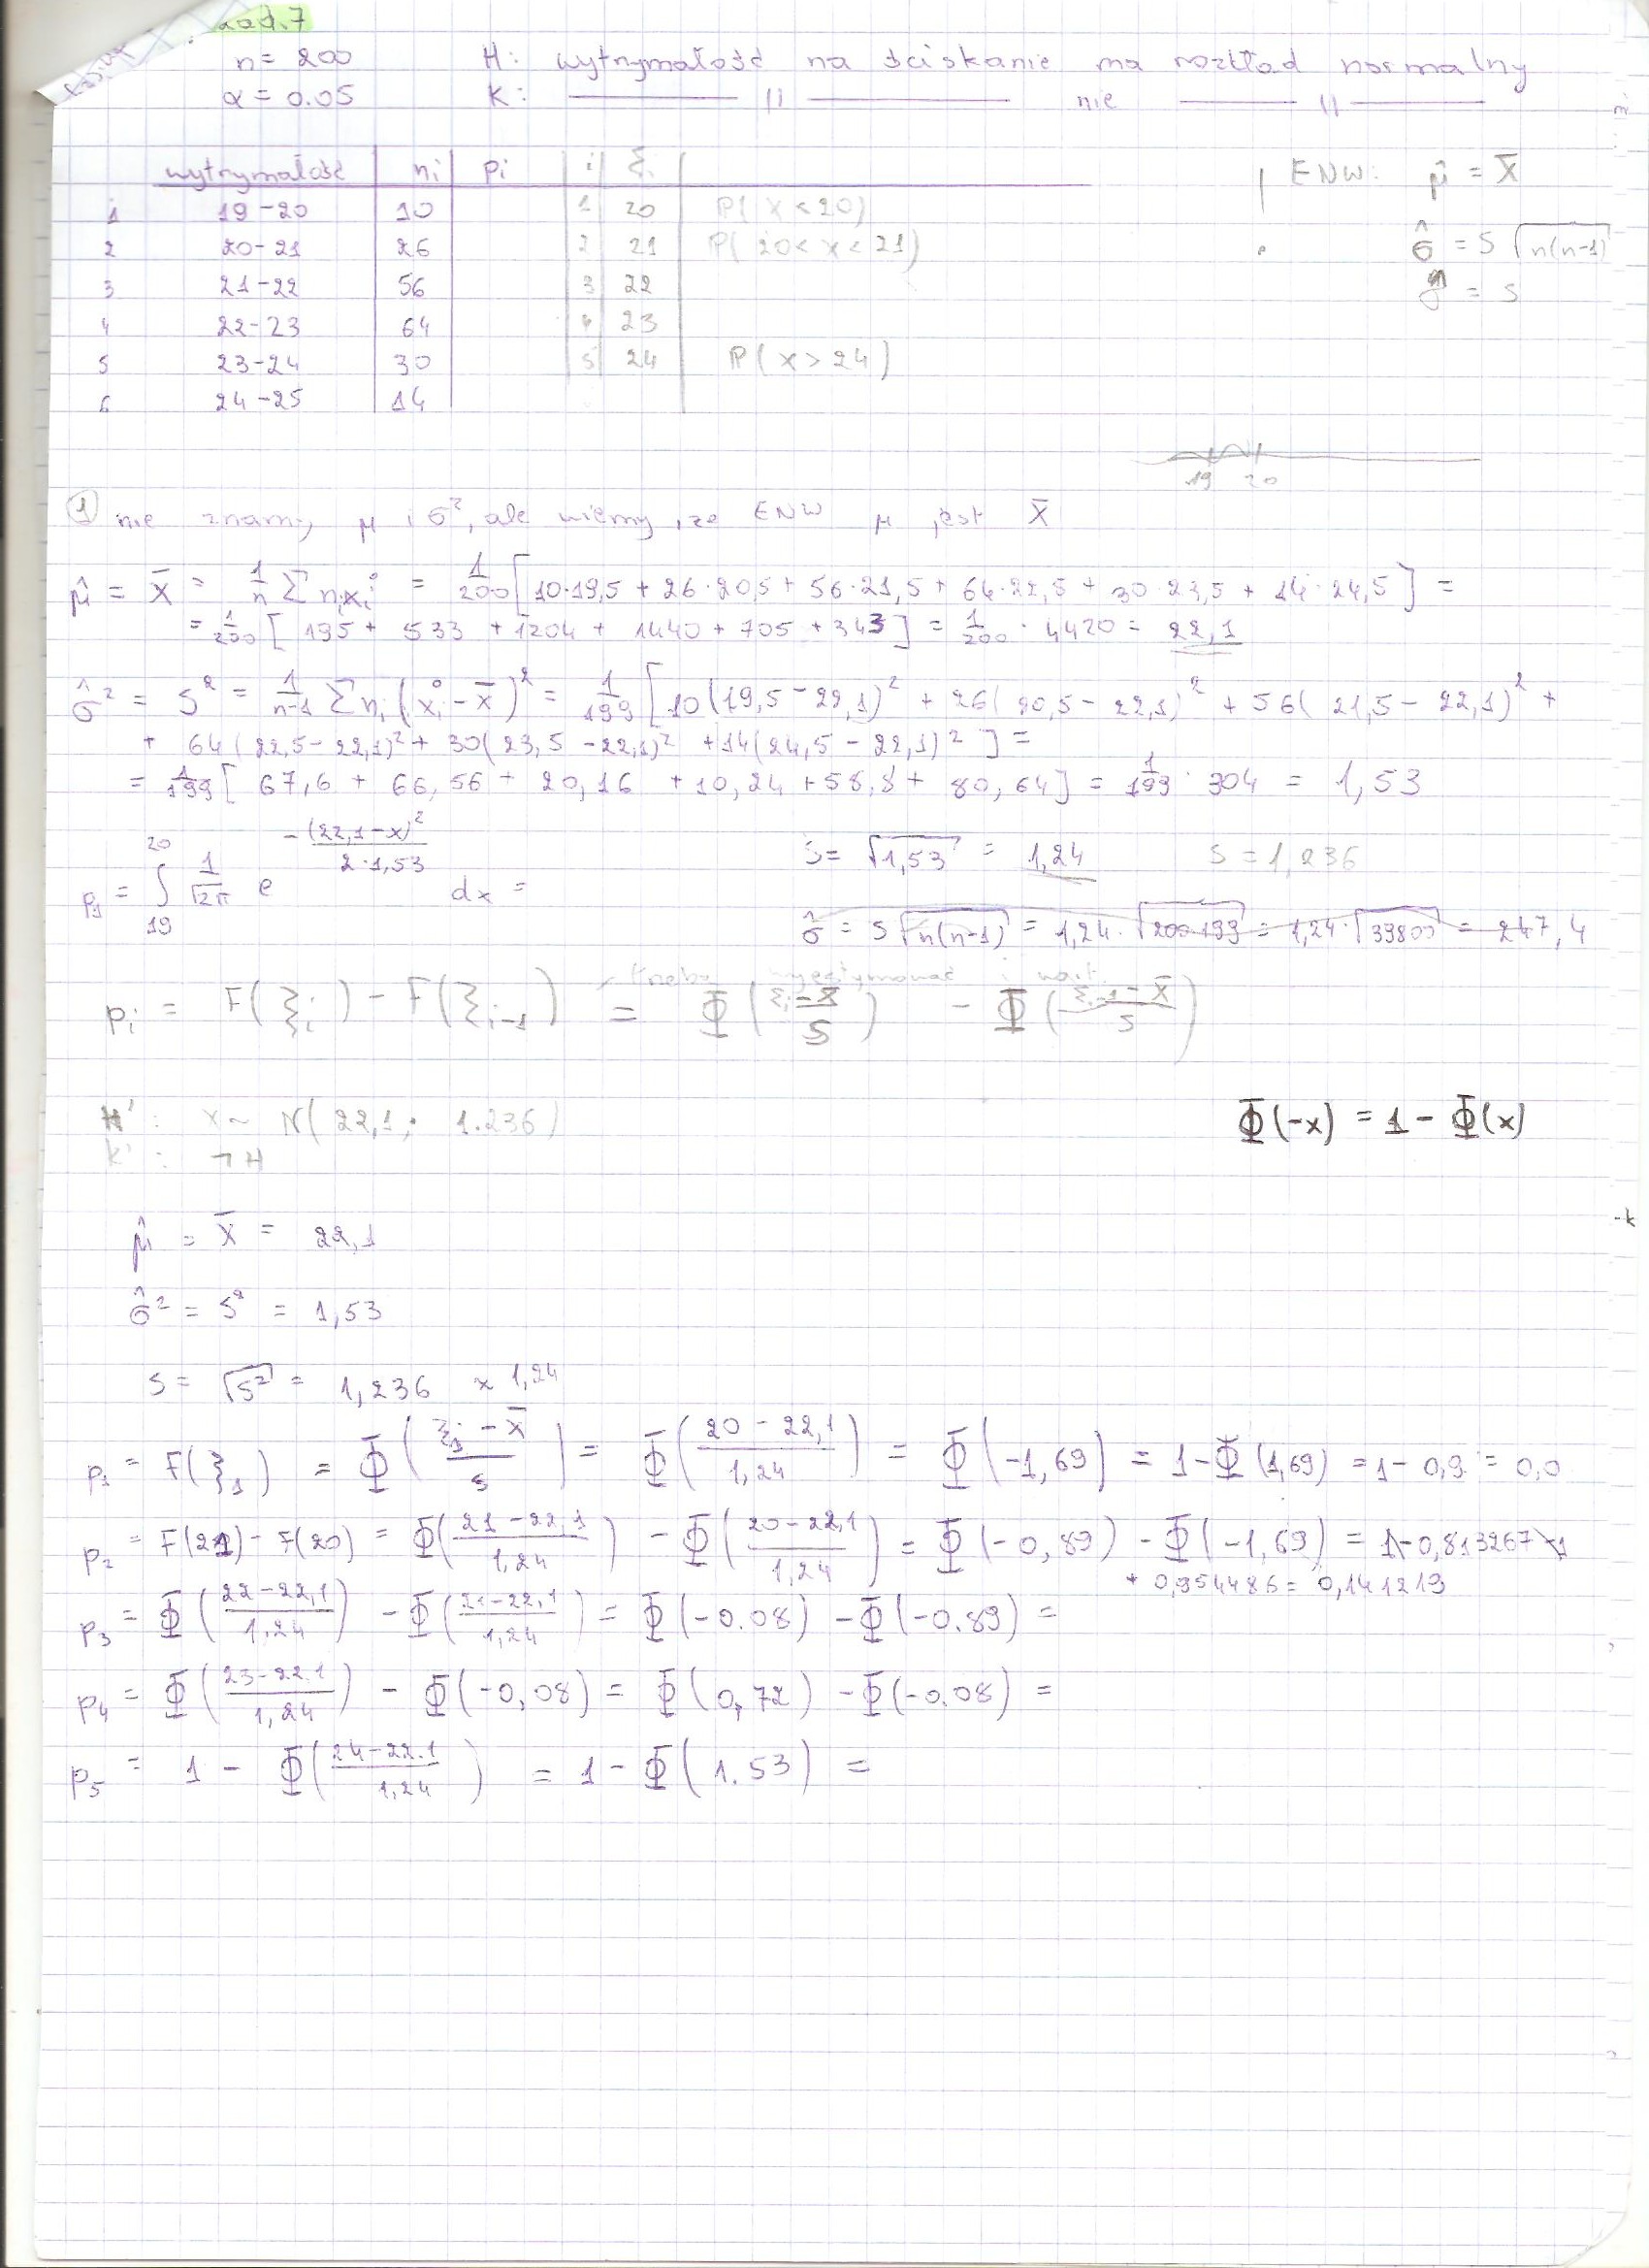 zad.7
n = 200 H: wytrzymałość na ściskanie ma rozkład normalny
α = 0.05 K: —— || —— nie —— || ——
wytrzymałość ni pi i ξi
1 19-20 10 1 20 P(X<20)
2 20-21 26 2 21 P(20<X<21)
3 21-22 56 3 22
4 22-23 64 4 23
5 23-24 30 5 24 P(X>24)
6 24-25 14
ENW: μ̂ = X̄
σ̂ = S √n(n-1)
= S
19 20
① nie znamy μ i σ², ale wiemy, że ENW μ jest X̄
μ̂ = X̄ = 1/n Σ nixi° = 1/200 [10·19,5 + 26·20,5 + 56·21,5 + 64·22,5 + 30·23,5 + 14·24,5] =
= 1/200 [195 + 533 + 1204 + 1440 + 705 + 343] = 1/200 · 4420 = 22,1
σ̂² = S² = 1/n-1 Σ ni (xi° - x̄)² = 1/199 [10(19,5-22,1)² + 26(20,5-22,1)² + 56(21,5-22,1)² +
+ 64(22,5-22,1)² + 30(23,5-22,1)² + 14(24,5-22,1)²] =
= 1/199 [67,6 + 66,56 + 20,16 + 10,24 + 58,8 + 80,64] = 1/199 · 304 = 1,53
p1 = ∫₁₉²⁰ 1/√2π e^-(22,1-x)²/2·1,53 dx =
S = √1,53 = 1,24 S = 1,236
σ̂ = S √n(n-1) = 1,24 · √200·199 = 1,24 · √39800 = 247,4
trzeba wyestymować
pi = F(ξi) - F(ξi-1) = Φ(ξi-X̄/S) - Φ(ξi-1-X̄/S)
H': X~ N(22,1; 1.236)
K': ¬H
Φ(-x) = 1 - Φ(x)
-k
μ̂ = X̄ = 22,1
σ̂² = S² = 1,53
S = √S² = 1,236 ≈ 1,24
p1 = F(ξ1) = Φ(ξ1-X̄/S) = Φ(20-22,1/1,24) = Φ(-1,69) = 1-Φ(1,69) = 1-0,9 = 0,0
p2 = F(21) - F(20) = Φ(21-22,1/1,24) - Φ(20-22,1/1,24) = Φ(-0,89) - Φ(-1,69) = 1-0,813267-1
+ 0,954486 = 0,141213
p3 = Φ(22-22,1/1,24) - Φ(21-22,1/1,24) = Φ(-0.08) - Φ(-0.89) =
p4 = Φ(23-22.1/1,24) - Φ(-0,08) = Φ(0,72) - Φ(-0.08) =
p5 = 1 - Φ(24-22.1/1,24) = 1 - Φ(1.53) =